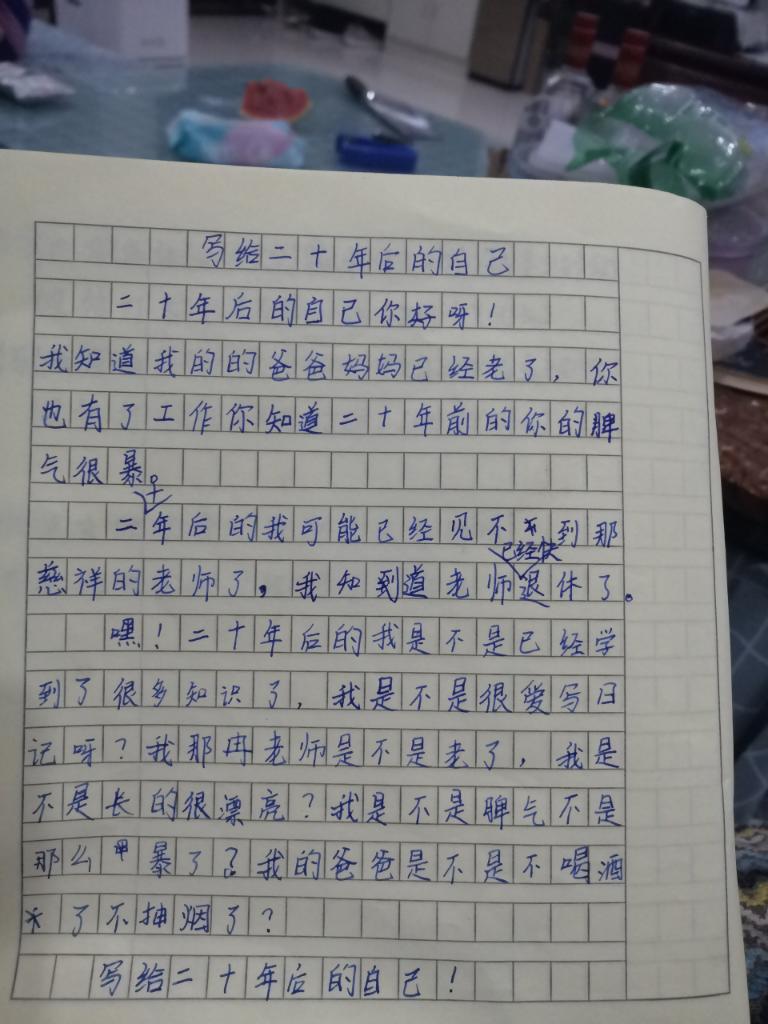 写给二十年后的自己
二十年后的自己你好呀！
我知道我的的爸爸妈妈已经老了，你
也有了工作你知道二十年前的你的脾
气很暴。
二十年后的我可能已经见不到那
慈祥的老师了，我知到道老师已经快退休了。
嘿！二十年后的我是不是已经学
到了很多知识了，我是不是很爱写日
记呀？我那冉老师是不是老了，我是
不是长的很漂亮？我是不是脾气不是
那么暴了？我的爸爸是不是不喝酒
了不抽烟了？
写给二十年后的自己！